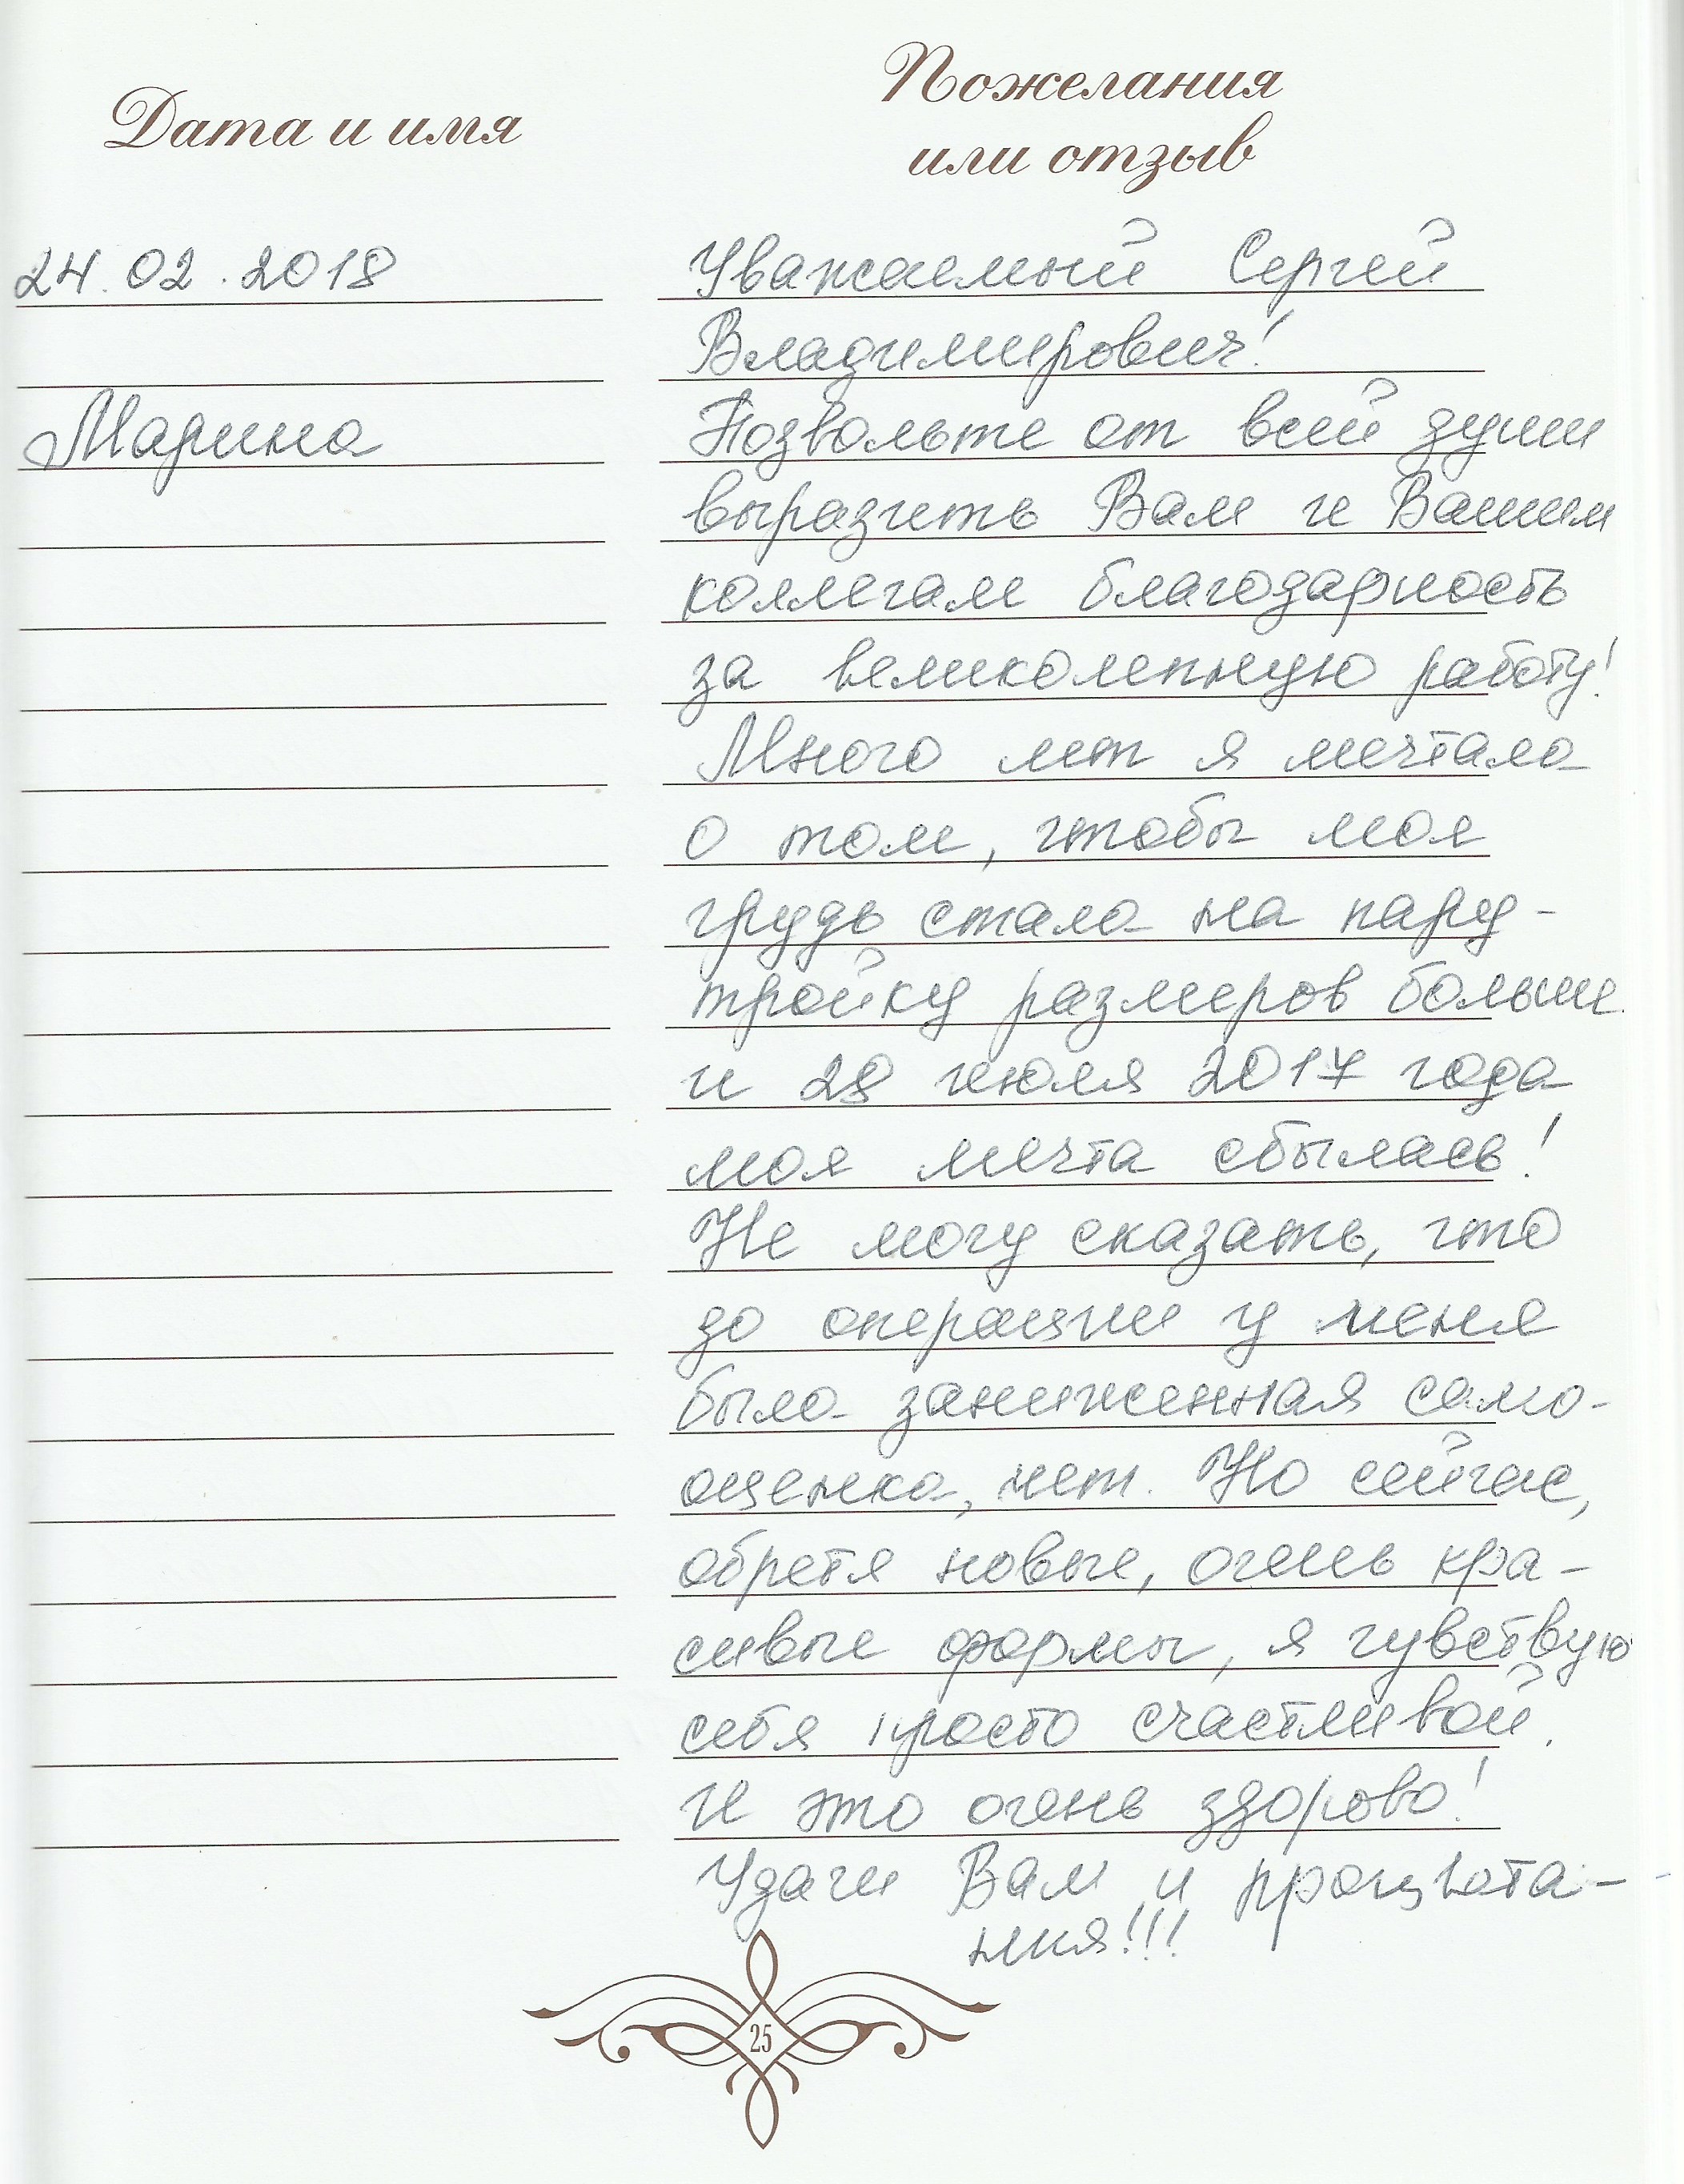 Дата и имя
Пожелания
или отзыв
24.02.2018
Марина
Уважаемый Сергей
Владимирович!
Позвольте от всей души
выразить Вам и Вашим
коллегам благодарность
за великолепную работу!
Много лет я мечтала
о том, чтобы моя
грудь стала на пару-
тройку размеров больше
и 28 июля 2017 года
моя мечта сбылась!
Не могу сказать, что
до операции у меня
была заниженная само-
оценка, нет. Но сейчас,
обретя новые, очень кра-
сивые формы, я чувствую
себя просто счастливой.
И это очень здорово!
Удачи Вам и процвета-
ния!!!
25